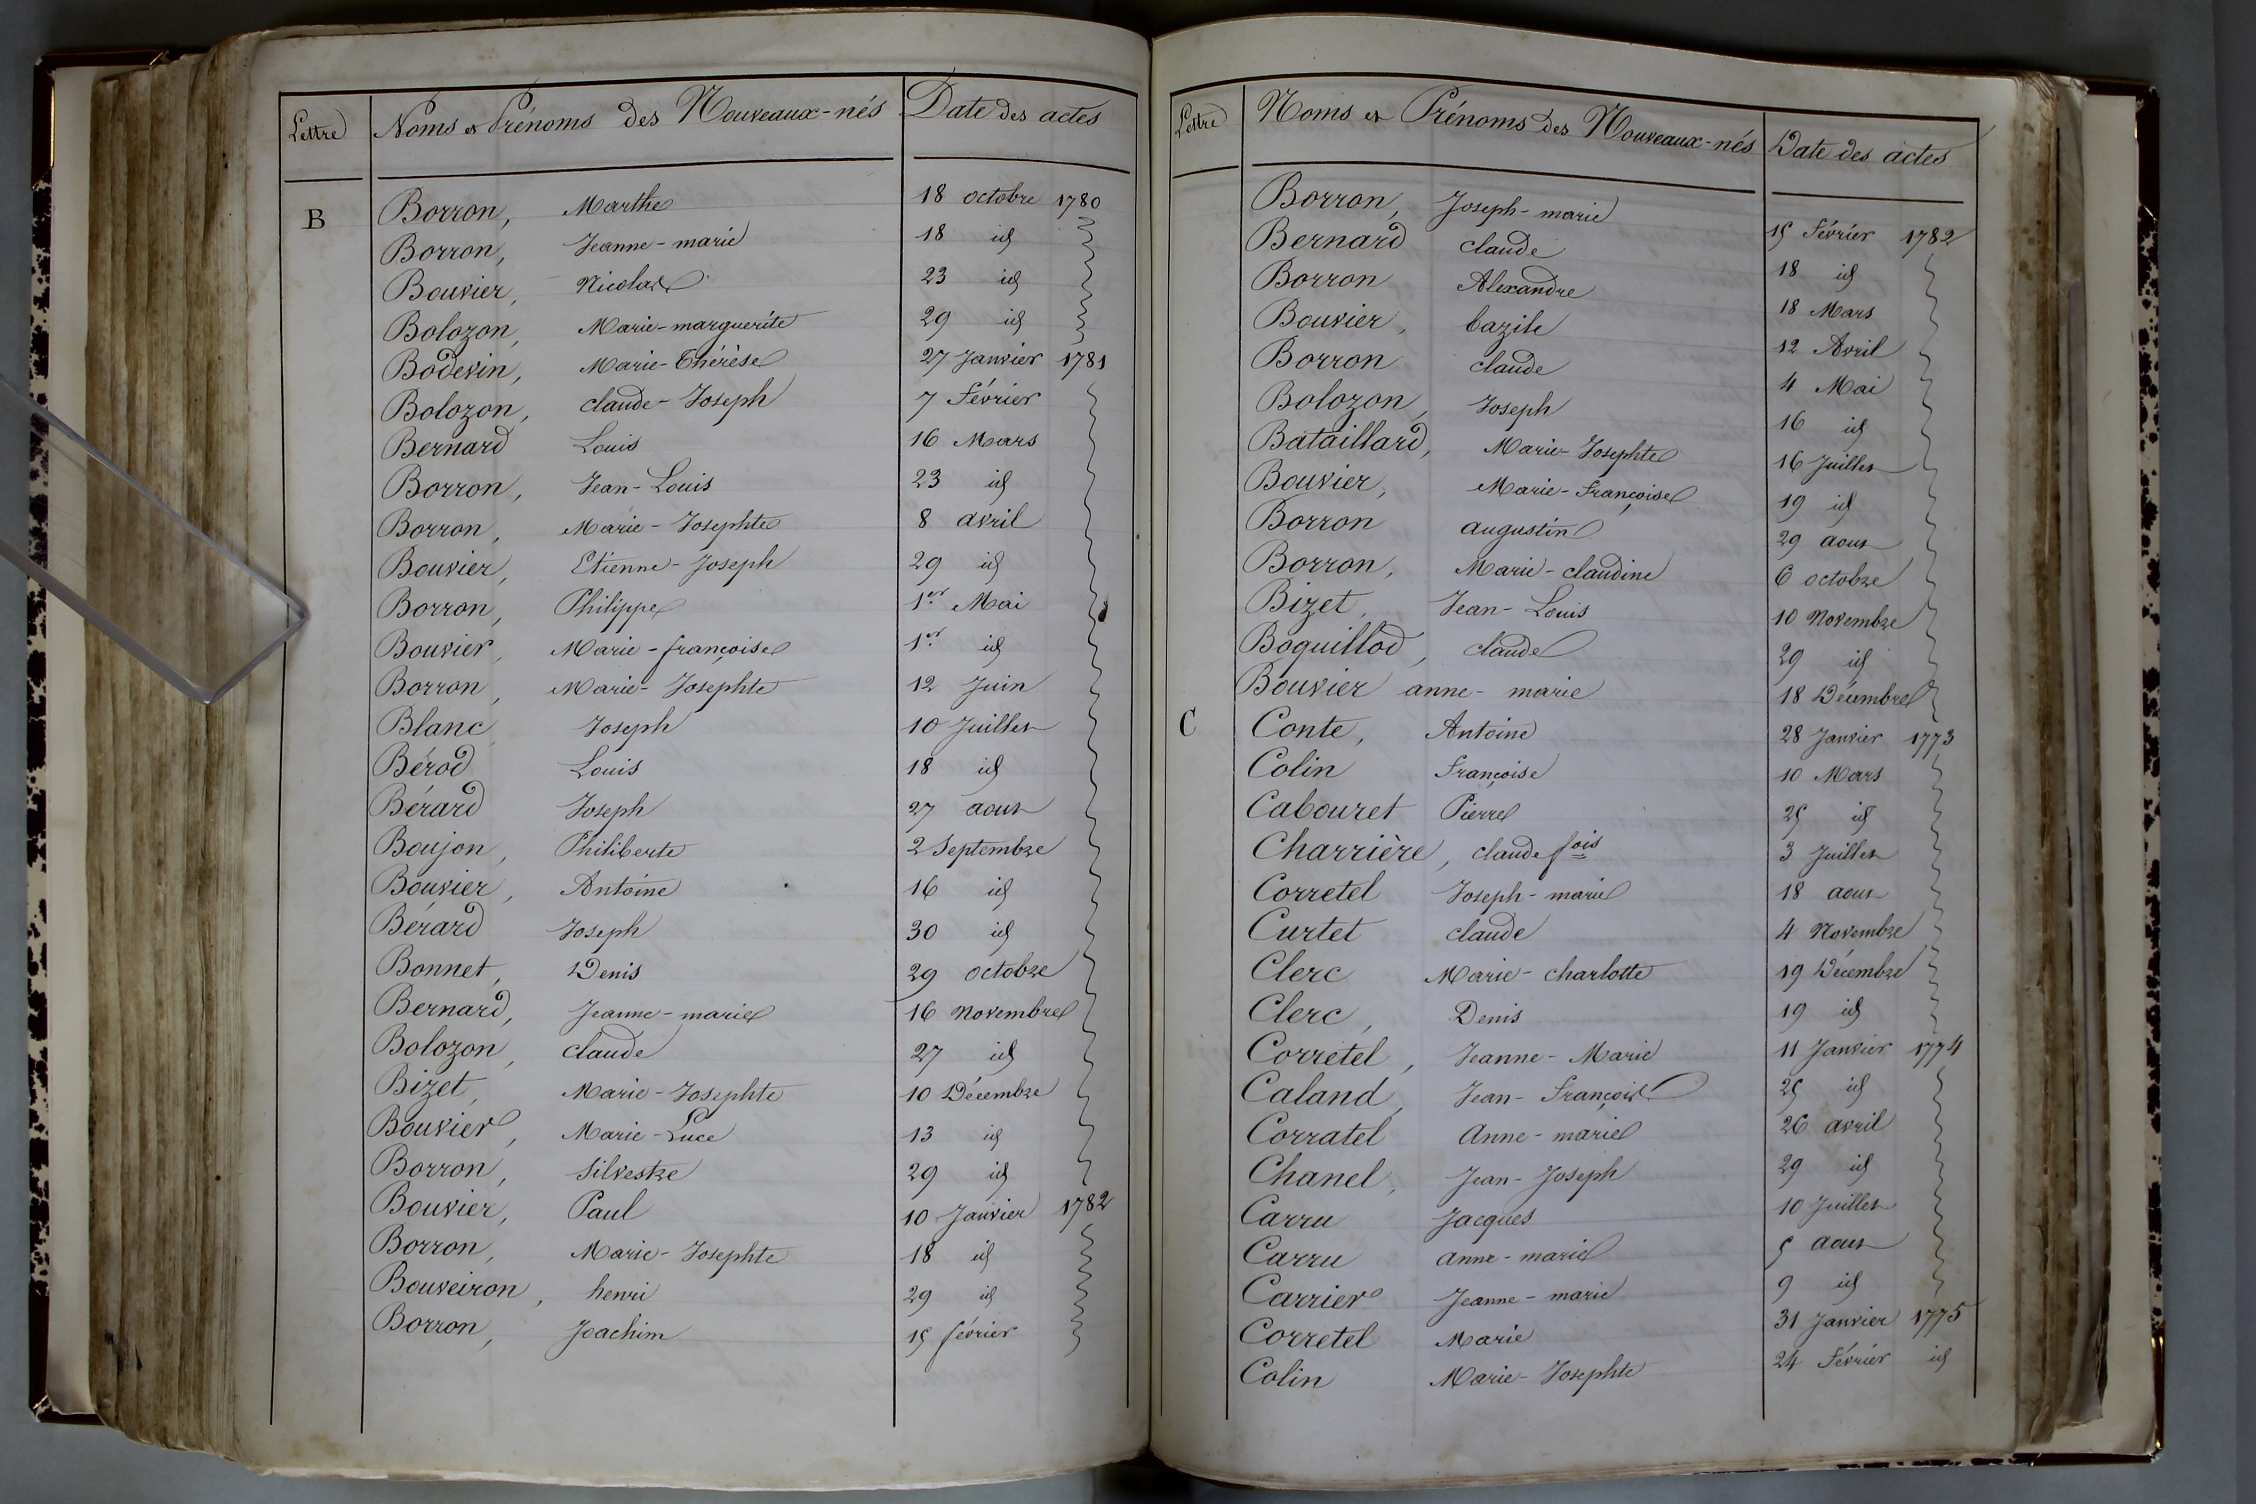 Lettre Noms et Prénoms des Nouveaux-nés Date des actes
B Borron, Marthe 18 octobre 1780
Borron, Jeanne-marie 18 id
Bouvier, Nicolas 23 id
Bolozon, Marie-marguerite 29 id
Bodevin, Marie-Thérèse 27 Janvier 1781
Bolozon, claude-Joseph 7 Février
Bernard Louis 16 Mars
Borron, Jean-Louis 23 id
Borron, Marie-Josephte 8 avril
Bouvier, Etienne-Joseph 29 id
Borron, Philippe 1er Mai
Bouvier, Marie-françoise 1er id
Borron, Marie-Josephte 12 Juin
Blanc Joseph 10 Juillet
Bérod Louis 18 id
Bérard Joseph 27 aout
Boujon, Philiberte 2 Septembre
Bouvier, Antoine 16 id
Bérard Joseph 30 id
Bonnet, Denis 29 octobre
Bernard, Jeanne-marie 16 Novembre
Bolozon, claude 27 id
Bizet, Marie-Josephte 10 Décembre
Bouvier, Marie-Luce 13 id
Borron, Silvestre 29 id
Bouvier, Paul 10 Janvier 1782
Borron, Marie-Josephte 18 id
Bouveiron, henri 29 id
Borron, Joachim 15 février
Lettre Noms et Prénoms des Nouveaux-nés Date des actes
Borron, Joseph-marie 15 Février 1782
Bernard claude 18 id
Borron Alexandre 18 Mars
Bouvier, bazile 12 Avril
Borron claude 4 Mai
Bolozon, Joseph 16 id
Bataillard, Marie-Josephte 16 Juillet
Bouvier, Marie-Françoise 19 id
Borron augustin 29 aout
Borron, Marie-claudine 6 octobre
Bizet, Jean-Louis 10 Novembre
Boquillod, claude 29 id
Bouvier anne-marie 18 Décembre
C Conte, Antoine 28 Janvier 1773
Colin françoise 10 Mars
Cabouret Pierre 25 id
Charrière, claude fois 3 Juillet
Corretel Joseph-marie 18 aout
Curtet claude 4 Novembre
Clerc Marie-charlotte 19 Décembre
Clerc, Denis 19 id
Corretel, Jeanne-Marie 11 Janvier 1774
Caland, Jean-François 25 id
Corratel Anne-marie 26 avril
Chanel, Jean-Joseph 29 id
Carru Jacques 10 Juillet
Carru anne-marie 5 aout
Carrier Jeanne-marie 9 id
Corretel Marie 31 Janvier 1775
Colin Marie-Josephte 24 Février id